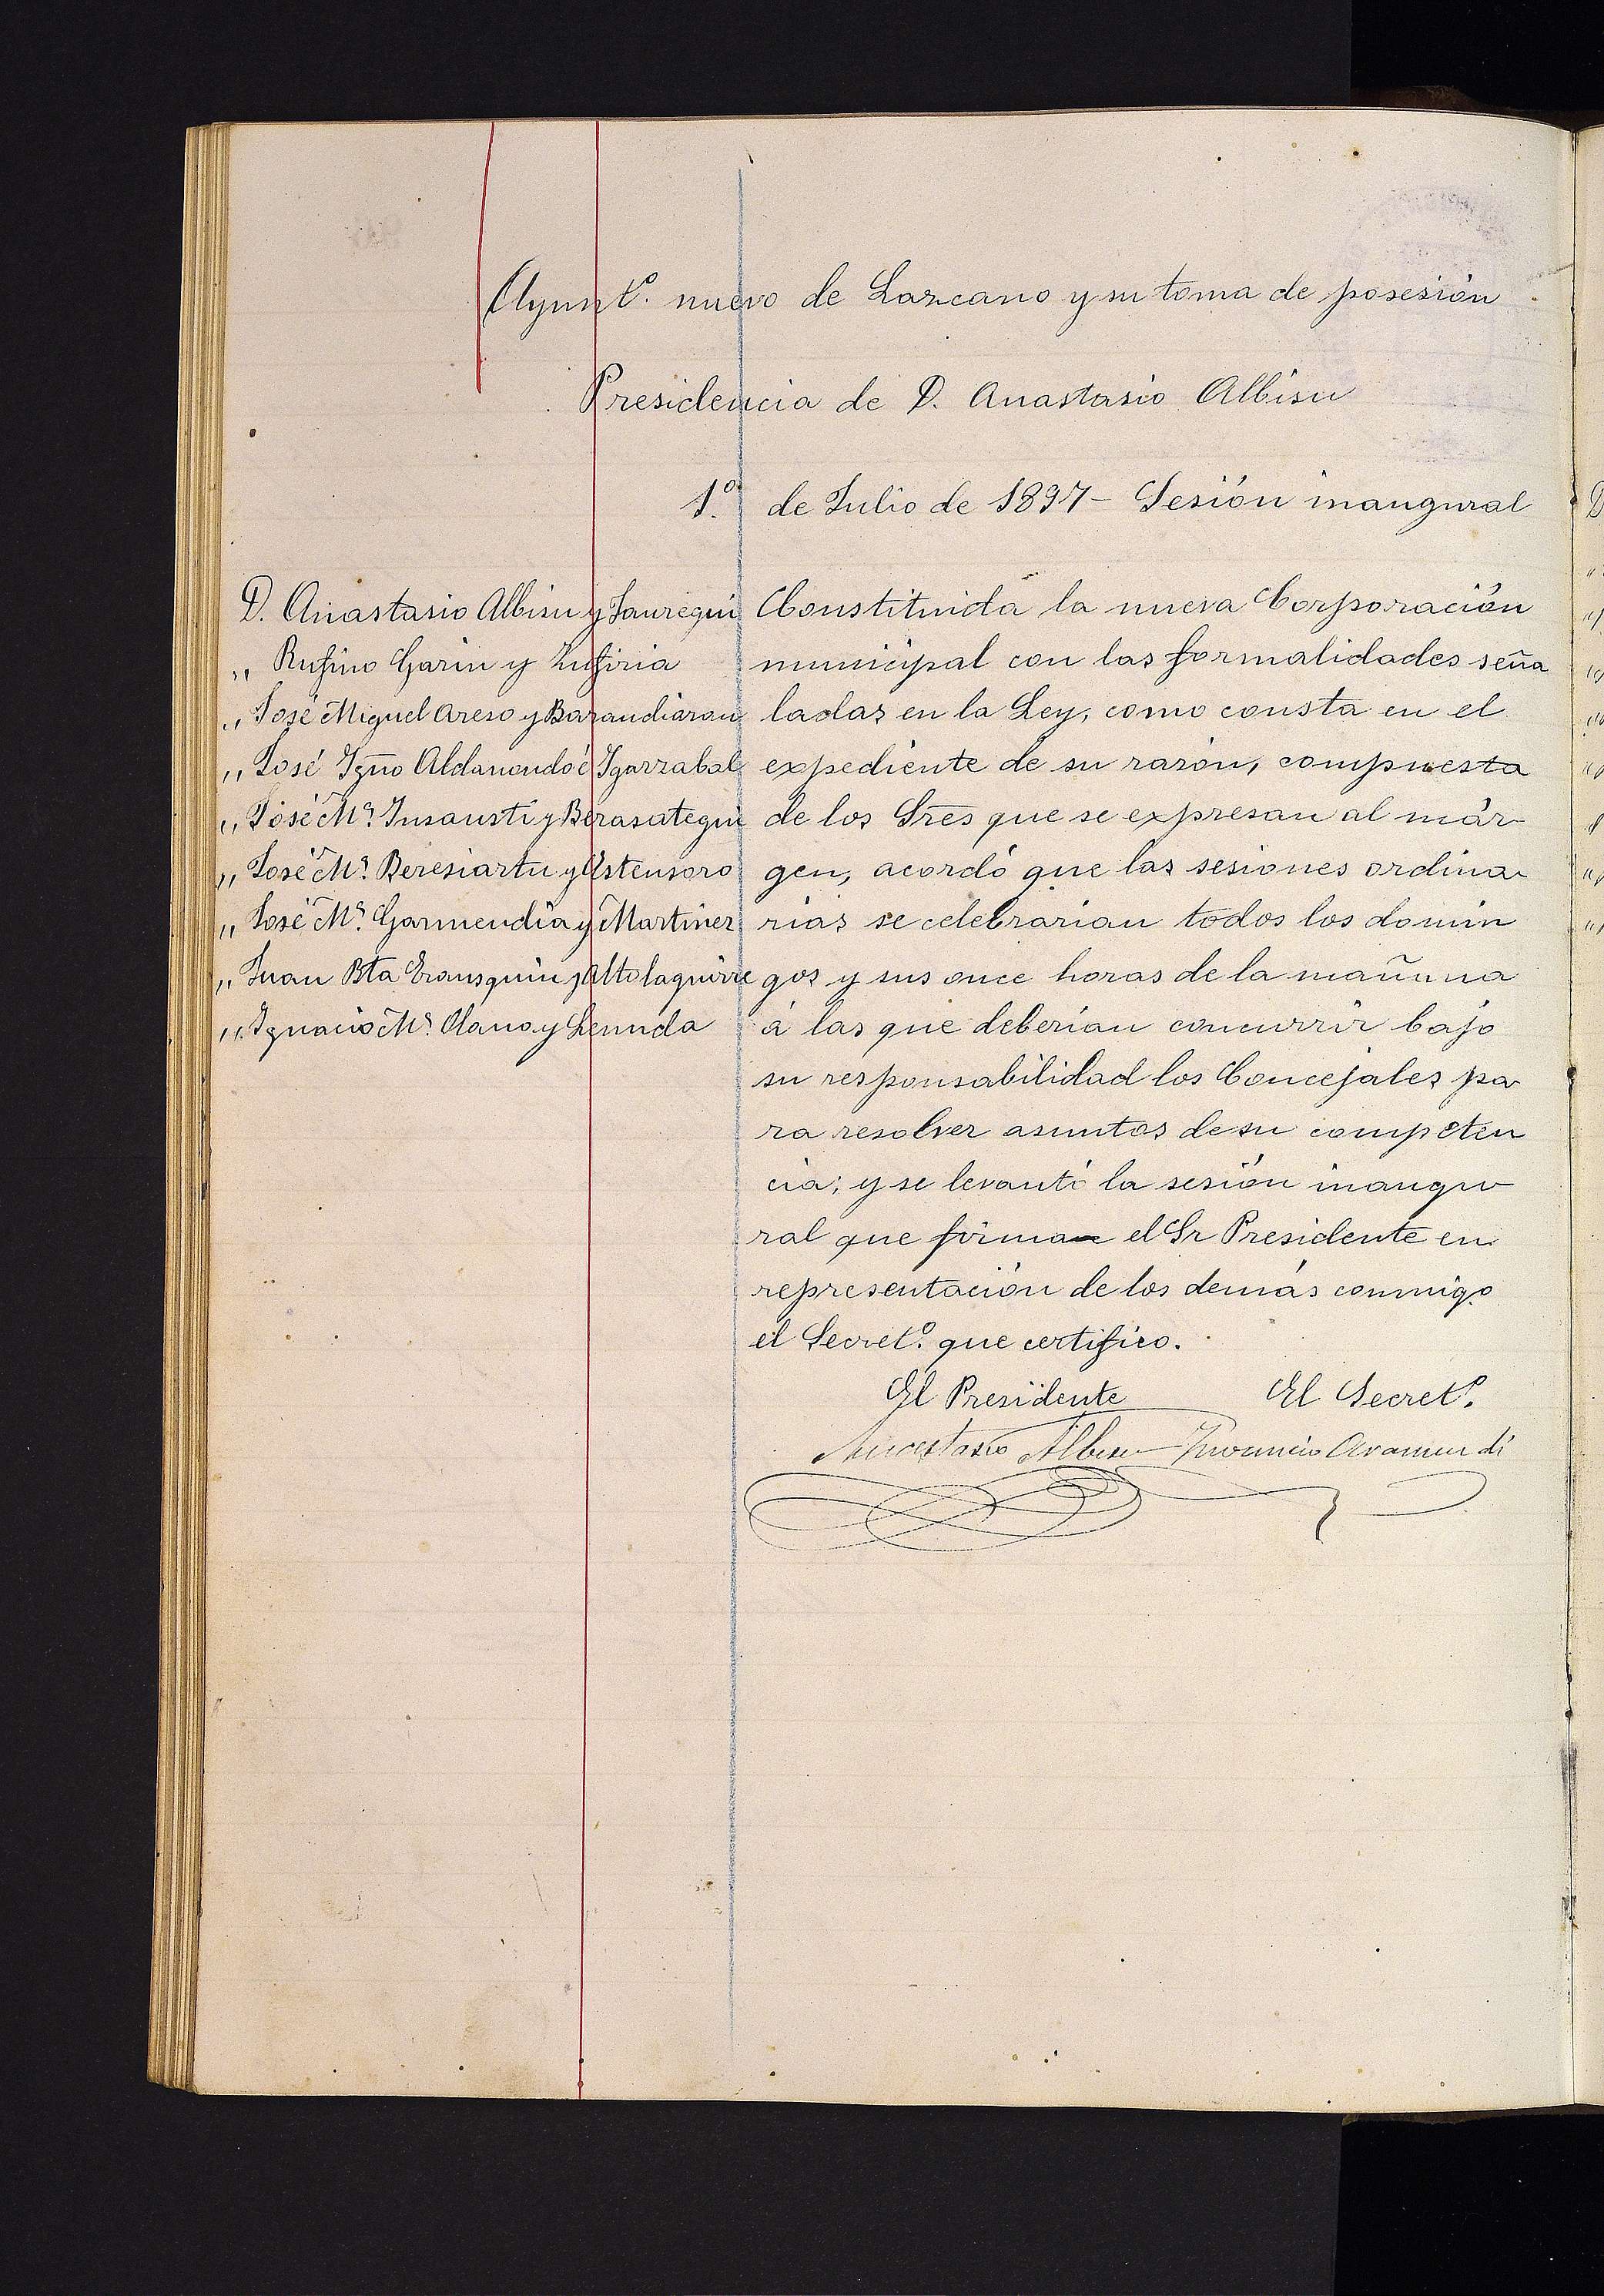 Ayunt.º nuevo de Lazcano y su toma de posesión
Presidencia de D. Anastasio Albisu
1.º de Julio de 1897 - Sesión inaugural
D. Anastasio Albisu y Jauregui
" Rufino Garin y Zufiria
" José Miguel Areso y Barandiaran
" José Igño Aldanondo é Igarzabal
" José Mª. Insausti y Berasategui
" José Mª. Beresiartu y Astensoro
" José Mª. Garmendia y Martinez
" Juan Bta Eransquin y Altolaguirre
" Ignacio Mª. Olano y
Constituida la nueva Corporación
municipal con las formalidades seña
ladas en la Ley, como consta en el
expediente de su razón, compuesta
de los Sres que se expresan al már-
gen, acordó que las sesiones ordina-
rias se celebrarian todos los domin
gos y sus once horas de la mañana
á las que deberian concurrir bajo
su responsabilidad los Concejales pa-
ra resolver asuntos de su competen
cia; y se levantó la sesión inaugu-
ral que firma el Sr Presidente en
representación de los demás conmigo
el Secret.º que certifico.
El Presidente El Secret.º
Anastasio Albisu Aramendi